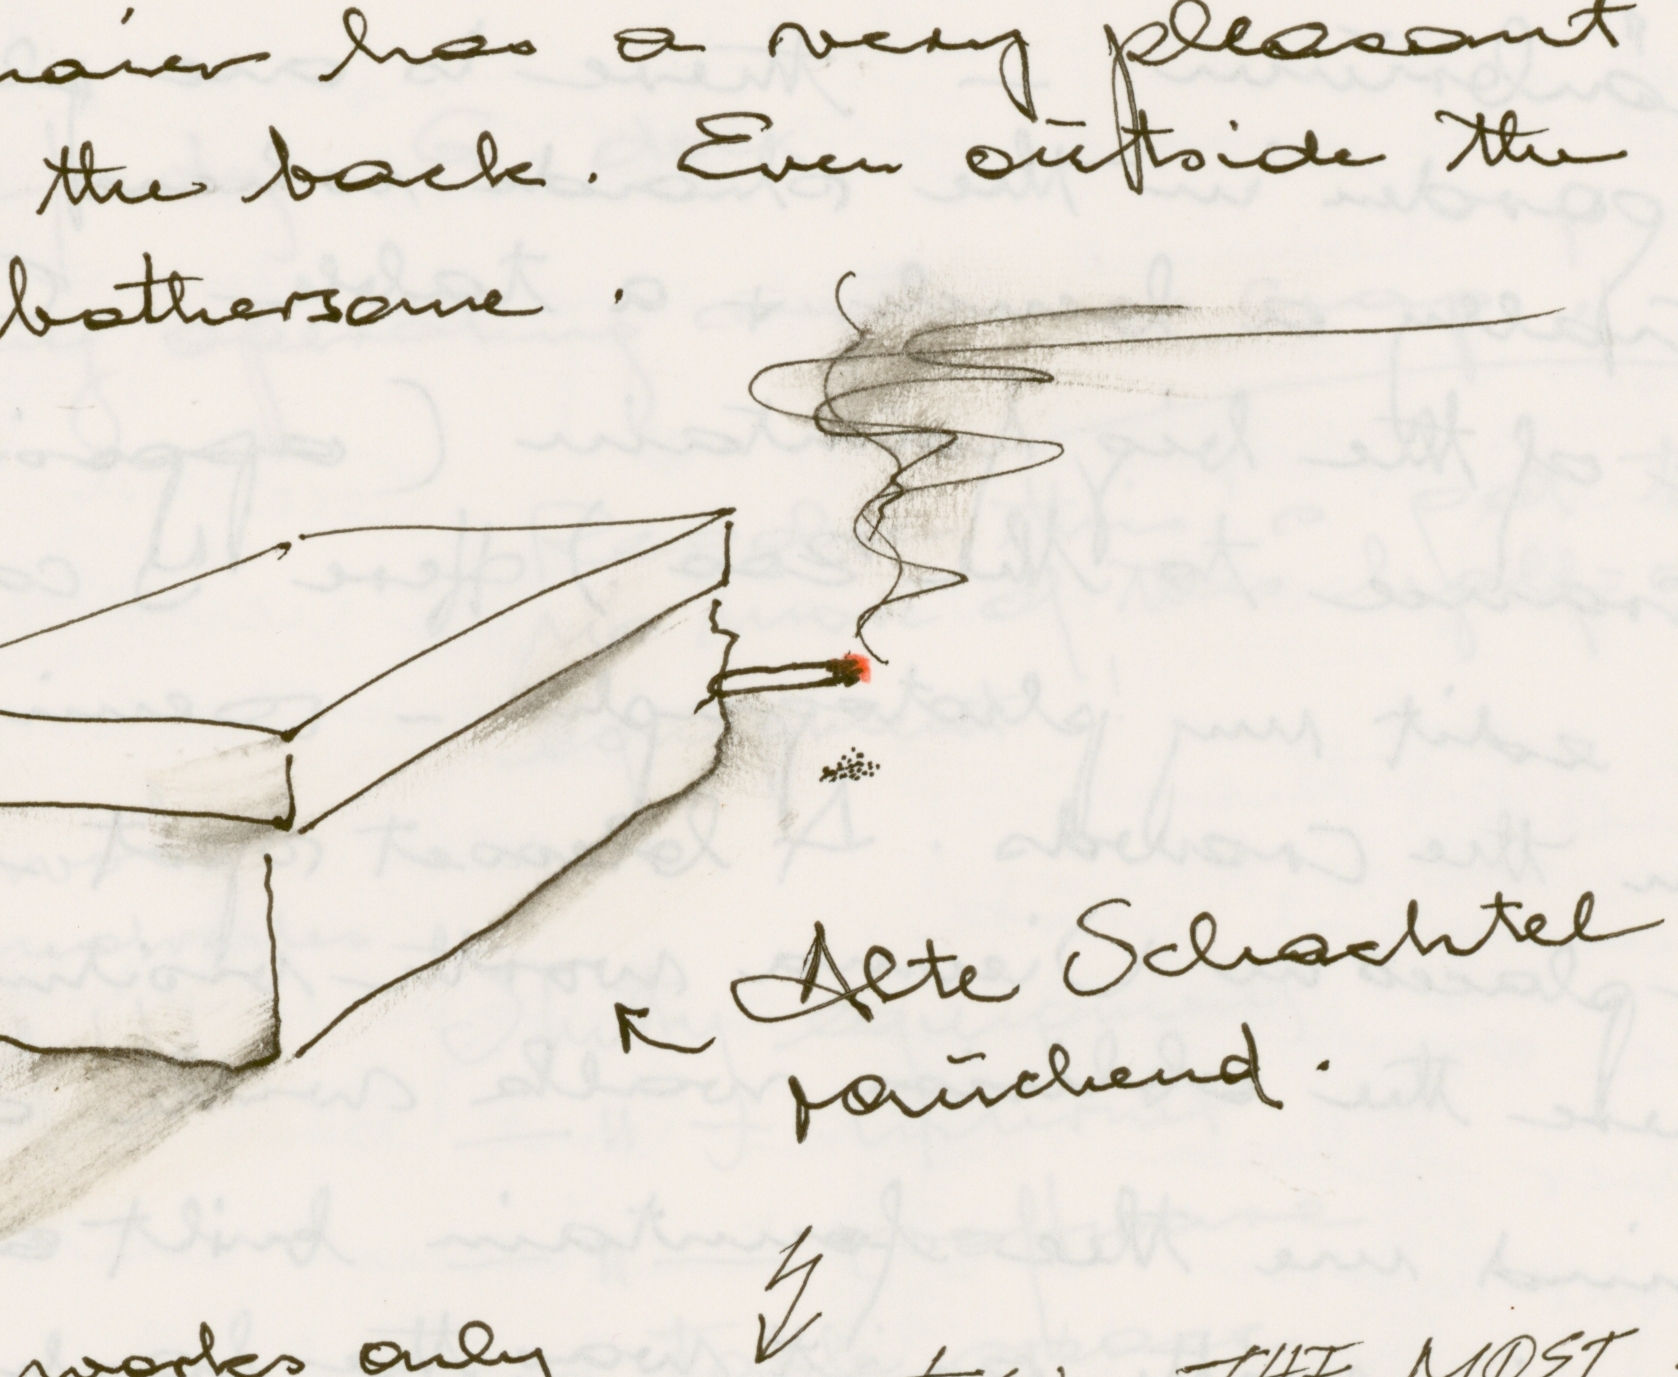 has a very pleasant
the back. Even outside the
bothersome.
Alte Schachtel
rauchend.
works only
THE MOST